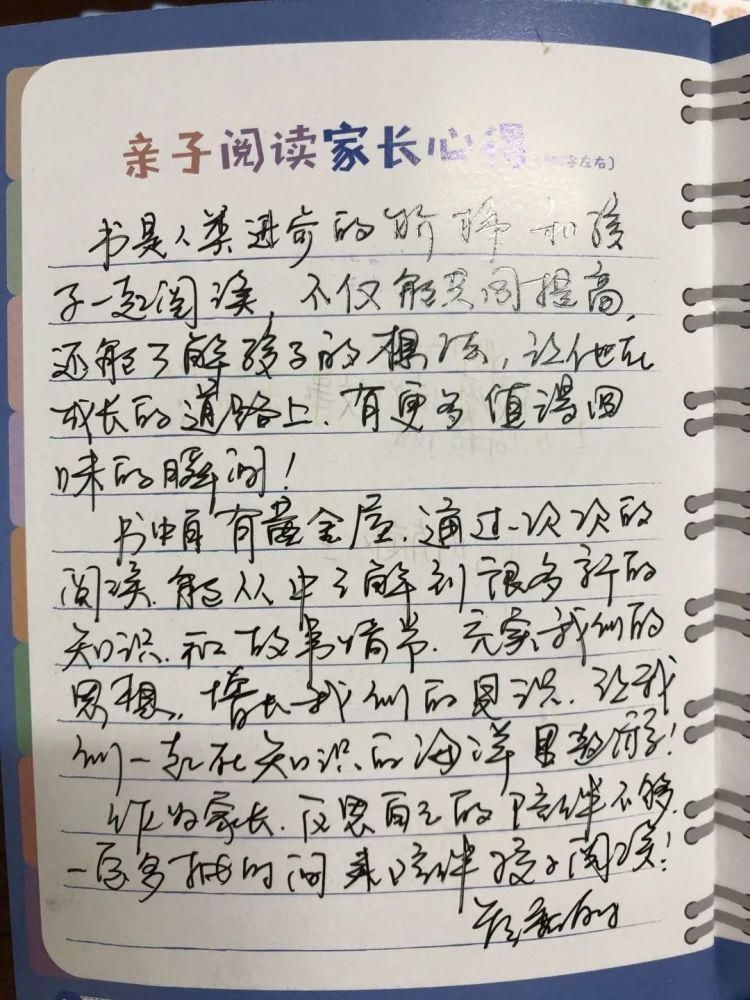 亲子阅读家长心得(100字左右)
书是人类进步的阶梯 和孩
子一起阅读,不仅能共同提高,
还能了解孩子的想法,让他在
成长的道路上,有更多值得回
味的瞬间!
书中自有黄金屋,通过一次次的
阅读,能从中了解到很多新的
知识,和故事情节,充实我们的
思想,增长我们的见识,让我
们一起在知识的海洋里遨游!
作为家长,反思自己的陪伴不够,
一定多抽时间来陪伴孩子阅读!